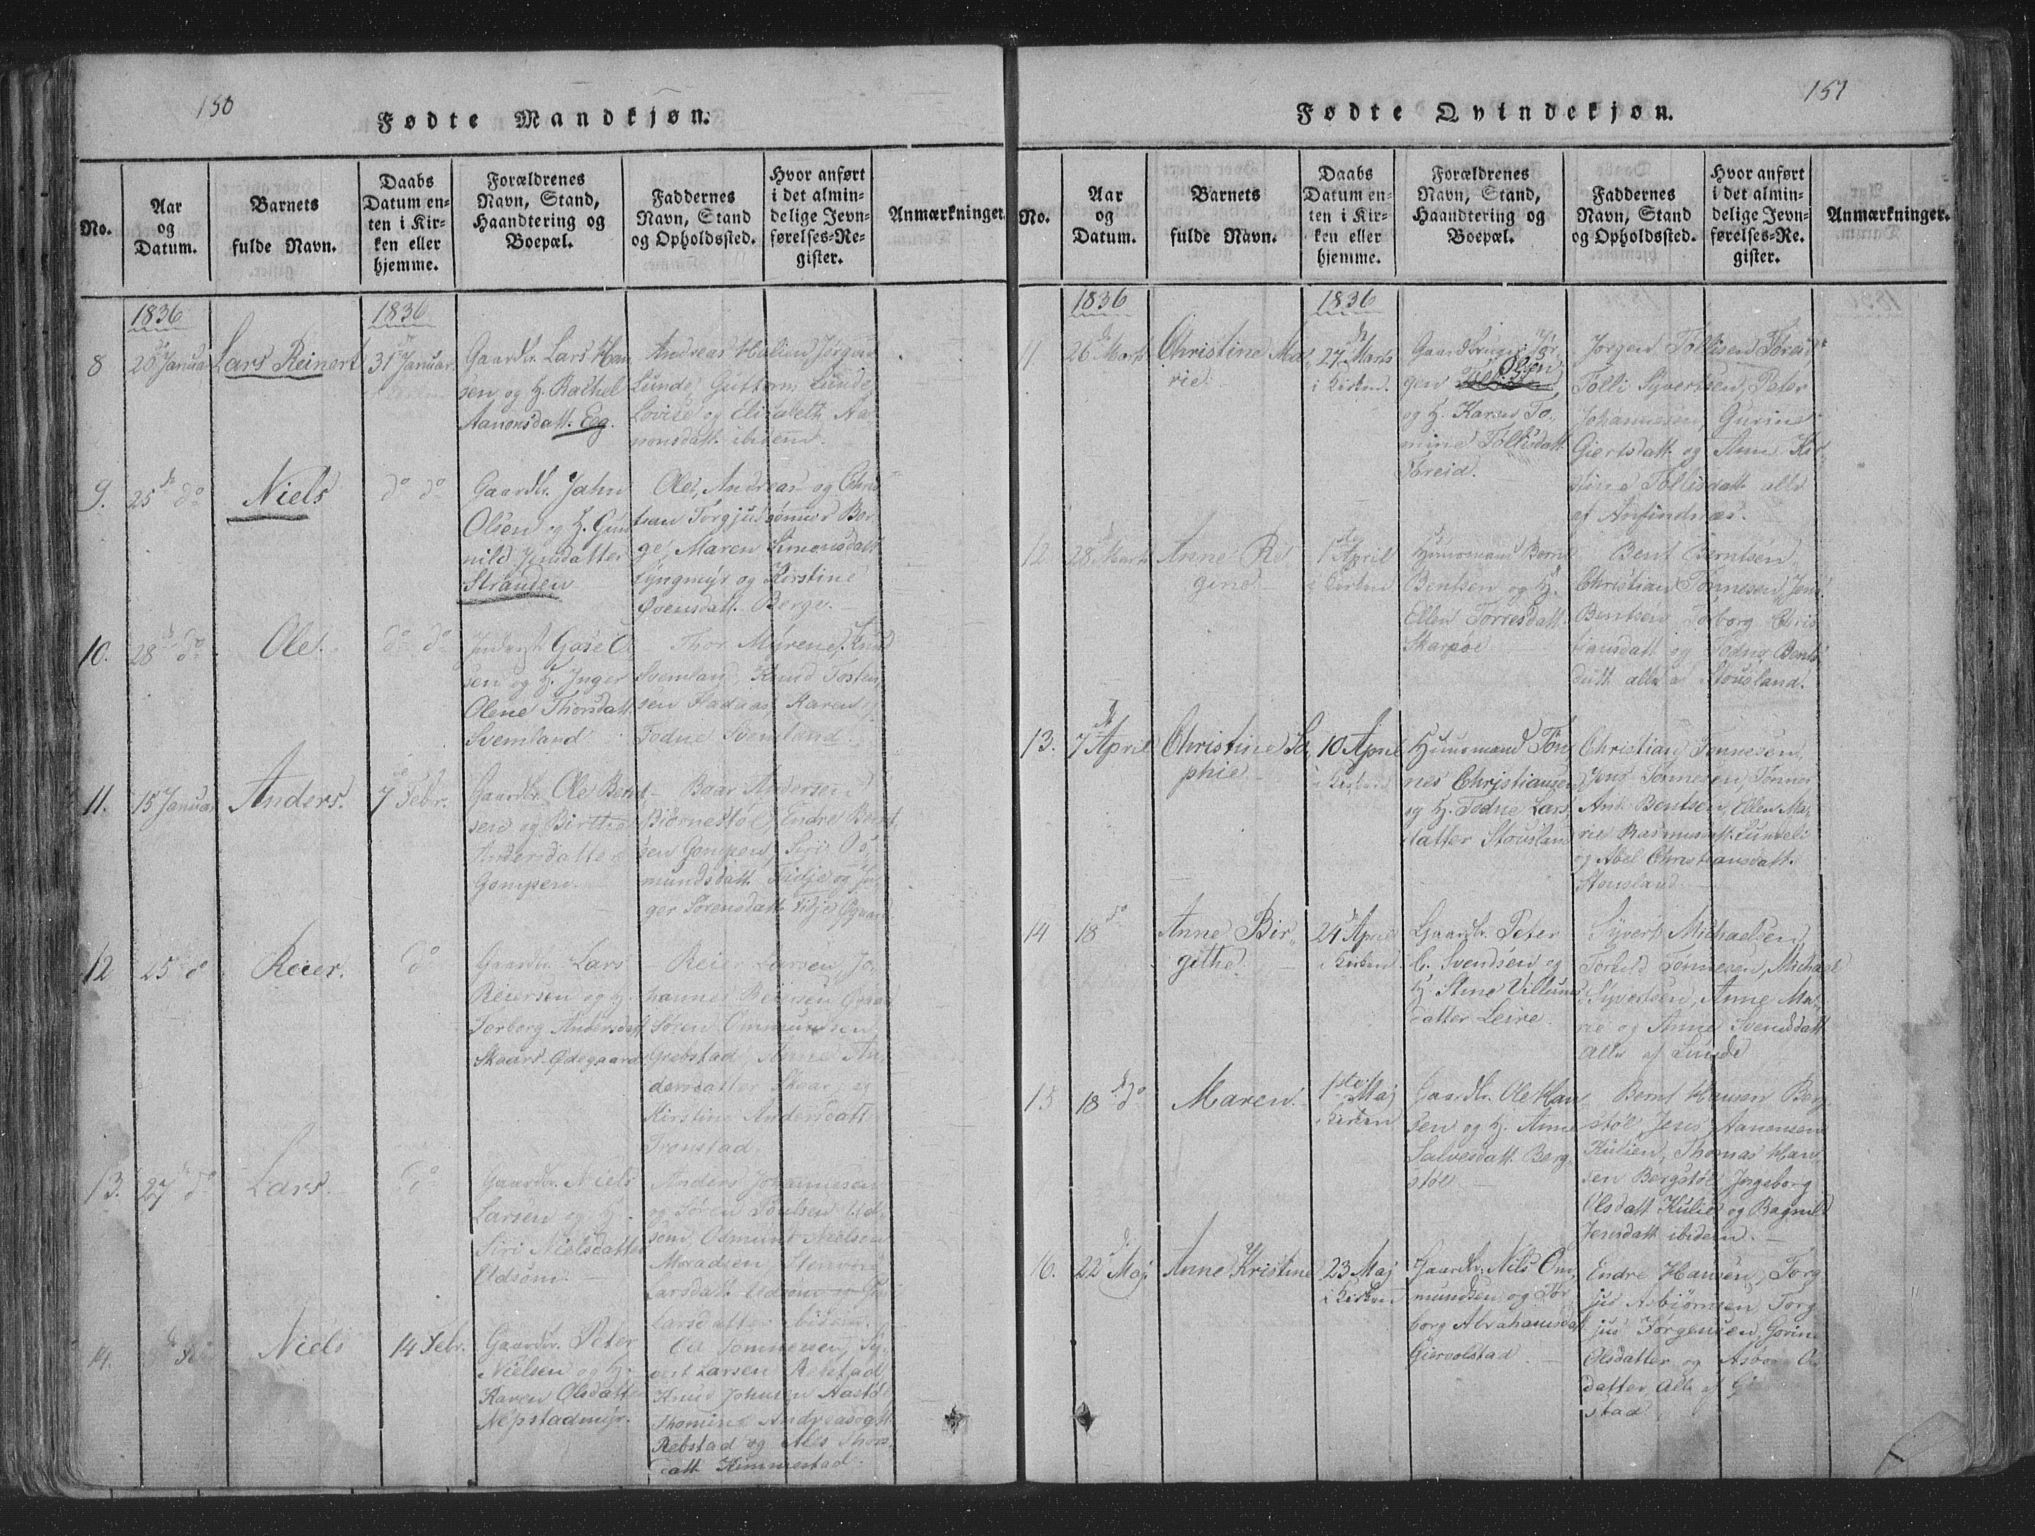 150
Fødte Mandkjøn.
No.
Aar
og
Datum.
Barnets
fulde Navn.
Daabs
Datum en-
ten i Kir-
ken eller
hjemme.
Forældrenes
Navn, Stand,
Haandtering og
Boepæl.
Faddernes
Navn, Stand
og Opholdssted.
Hvor anført
i det almin-
delige Jevn-
førelses-Re-
gister.
Anmærkninger.
1836
1836
8
Lars Reinert
31 Januar
Gaardbr. Lars Han
sen og H. Rachel
Aanonsdatt. Eeg.
Andreas
Lunde, Guttorm Lunde
Lovise og Elisabeth Aa-
nonsdatt. ibidem.
9.
25 do
Niels
do do
Gaardbr. Jahn
Olsen og H. Gun
nild
Stranden
Ole, Andreas og Chris
tian Torgjusønner Ber
ge, Maren Simonsdatt.
Lyngmyr og Kirstine
Svensdatt. Berge.
10.
28 do
Ole.
do do
sen og H. Inger
Olene Thorsdatt
Svemland
Thor Myrene, Knud
Svemland, Knud Tosten
sen Aadnas, Karen
Todne Svemland.
11.
15 Januar
Anders.
7 Febr.
Gaardbr. Ole Bent
sen og Birthe
Andersdatter
Gompen.
Boar Andersen
Biørnestøl, Endre Bent
sen Gompen, Siri Os
mundsdatt. Fidje og In
ger Sørensdatt. Fidje
12
25 do
Reier.
do
Gaardbr. Lars
Reiersen og H.
Torborg Andersdatt
Skaars Ødegaard
Reier Larsen, Jo
hannes Reiersen
Søren Ommundsen
Grebstad, Anne An
dersdatter Skaar, og
Kirstine Andersdatt
Tronstad.
13.
27 do
Lars.
do
Gaardbr. Niels
Larsen og H.
Siri Nielsdatter
Udsøm.
Anders Johannesen
og Søren Poulsen Ud
søm, Odmund Nielsen
Larsdatt. Udsøm
Larsdatter ibidem.
14.
Niels
14 Febr.
Gaardbr. Peter
Nielsen og H.
Karen Olsdatter
Nepstadmyr.
Ole Tønnesen, Sy
vert Larsen Rebstad
Knud Johnsen Aastøl
Thomine Andreasdatt
Rebstad og Ales Thors
datt Kimmestad.
151
Fødte Qvindekjøn.
No.
Aar
og
Datum.
Barnets
fulde Navn.
Daabs
Datum en-
ten i Kir-
ken eller
hjemme.
Forældrenes
Navn, Stand,
Haandtering og
Boepæl.
Faddernes
Navn, Stand
og Opholdssted.
Hvor anført
i det almin-
delige Jevn-
førelses-Re-
gister.
Anmærkninger.
1836
1836
11
26 Marts
Christine Ma
rie.
27 Marts
i Kirken
Gaardbruger Jør
gen Olsen
og H. Karen To
mine Tollisdatt
Breid.
Jørgen Tollisen Breid
Tolli Syvertsen, Peter
Johannesen, Gurine
Giertsdatt og Anne Kir
stine Tollisdatt alle
af Anfindnæs.
12
28 Marts
Anne Re
gine
1ste April
i Kirken
Huusmand Bernt
Bentsen og H.
Ellen Torresdatt.
Skarpøe
Bent Berntsen
Christian Tønnesen, Jens
Bentsen, Torborg Chris
tiansdatt og Todne Bents
datt alle af Stousland.
13.
7 April
Christine So
phie
10 April
i Kirken
Huusmand Tøn
nes Christiansen
og H. Todne Lars
datter Stousland
Christian Tønnesen
Jens Tønnesen, Tønnes
Ant. Bentsen, Ellen Ma
rie Rasmusdatt.
og Abel Christiansdatt.
Stousland
14
18 do
Anne Bir
githe.
24 April
i Kirken
Gaardbr. Peter
C. Svendsen og
H. Stine Villums
datter Leire.
Syvert Michaelsen
Torkild Tønnesen, Michael
Syvertsen, Anne Ma
rie og Anne Svendsdatt
Alle af Lunde
15
18 do
Maren.
1ste Maj
i Kirken
Gaardbr. Ole Han
sen og H. Anne
Salvesdatt. Berg
støl
Bernt Hansen Berg
støl, Jens Aanonsen
Kulien, Thomas Han
sen Bergstøl, Ingeborg
Olsdatt Kulien og Ragnild
Jensdatt ibidem.
16.
22 Maj
Anne Kristine
23 Maj
i Kirken
Gaardbr. Nils Om
mundsen og Tor
borg Abrahamsdatt
Giervolstad
Endre Hansen, Torg
jus Asbiørnsen, Torg
jus Jørgensen, Gorine
Olsdatter og Asborg Ols
datter, Alle af
stad